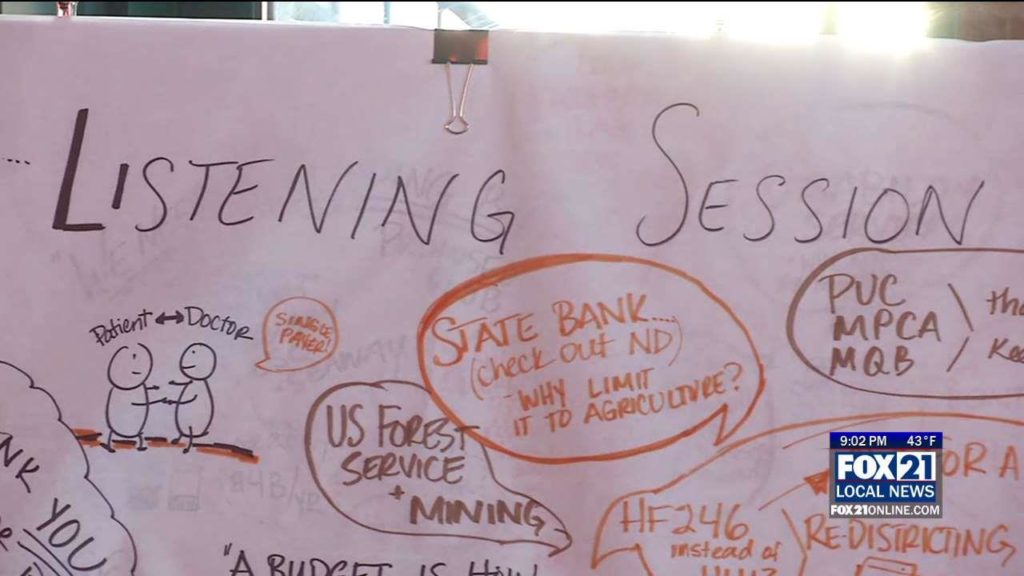 LISTENING SESSION
Patient ↔ Doctor
SINGLE
PAYER!
STATE BANK....
(check out ND)
- WHY LIMIT
IT TO AGRICULTURE?
PUC
MPCA
MQB
US FOREST
SERVICE
+
MINING
YOU
HF246
instead of
OR A
RE-DISTRICTING
"A BUDGET IS HOW
9:02 PM 43°F
FOX 21
LOCAL NEWS
FOX21ONLINE.COM